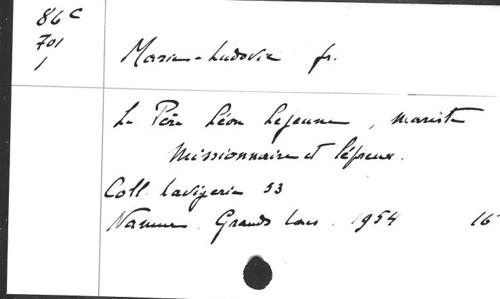 86 C
701
1
Marie-Ludovic fr.
Le Père Léon Lejeune, mariste
missionnaire et lépreux.
Coll. Lavigerie 53
Namur, Grands Lacs, 1954 16